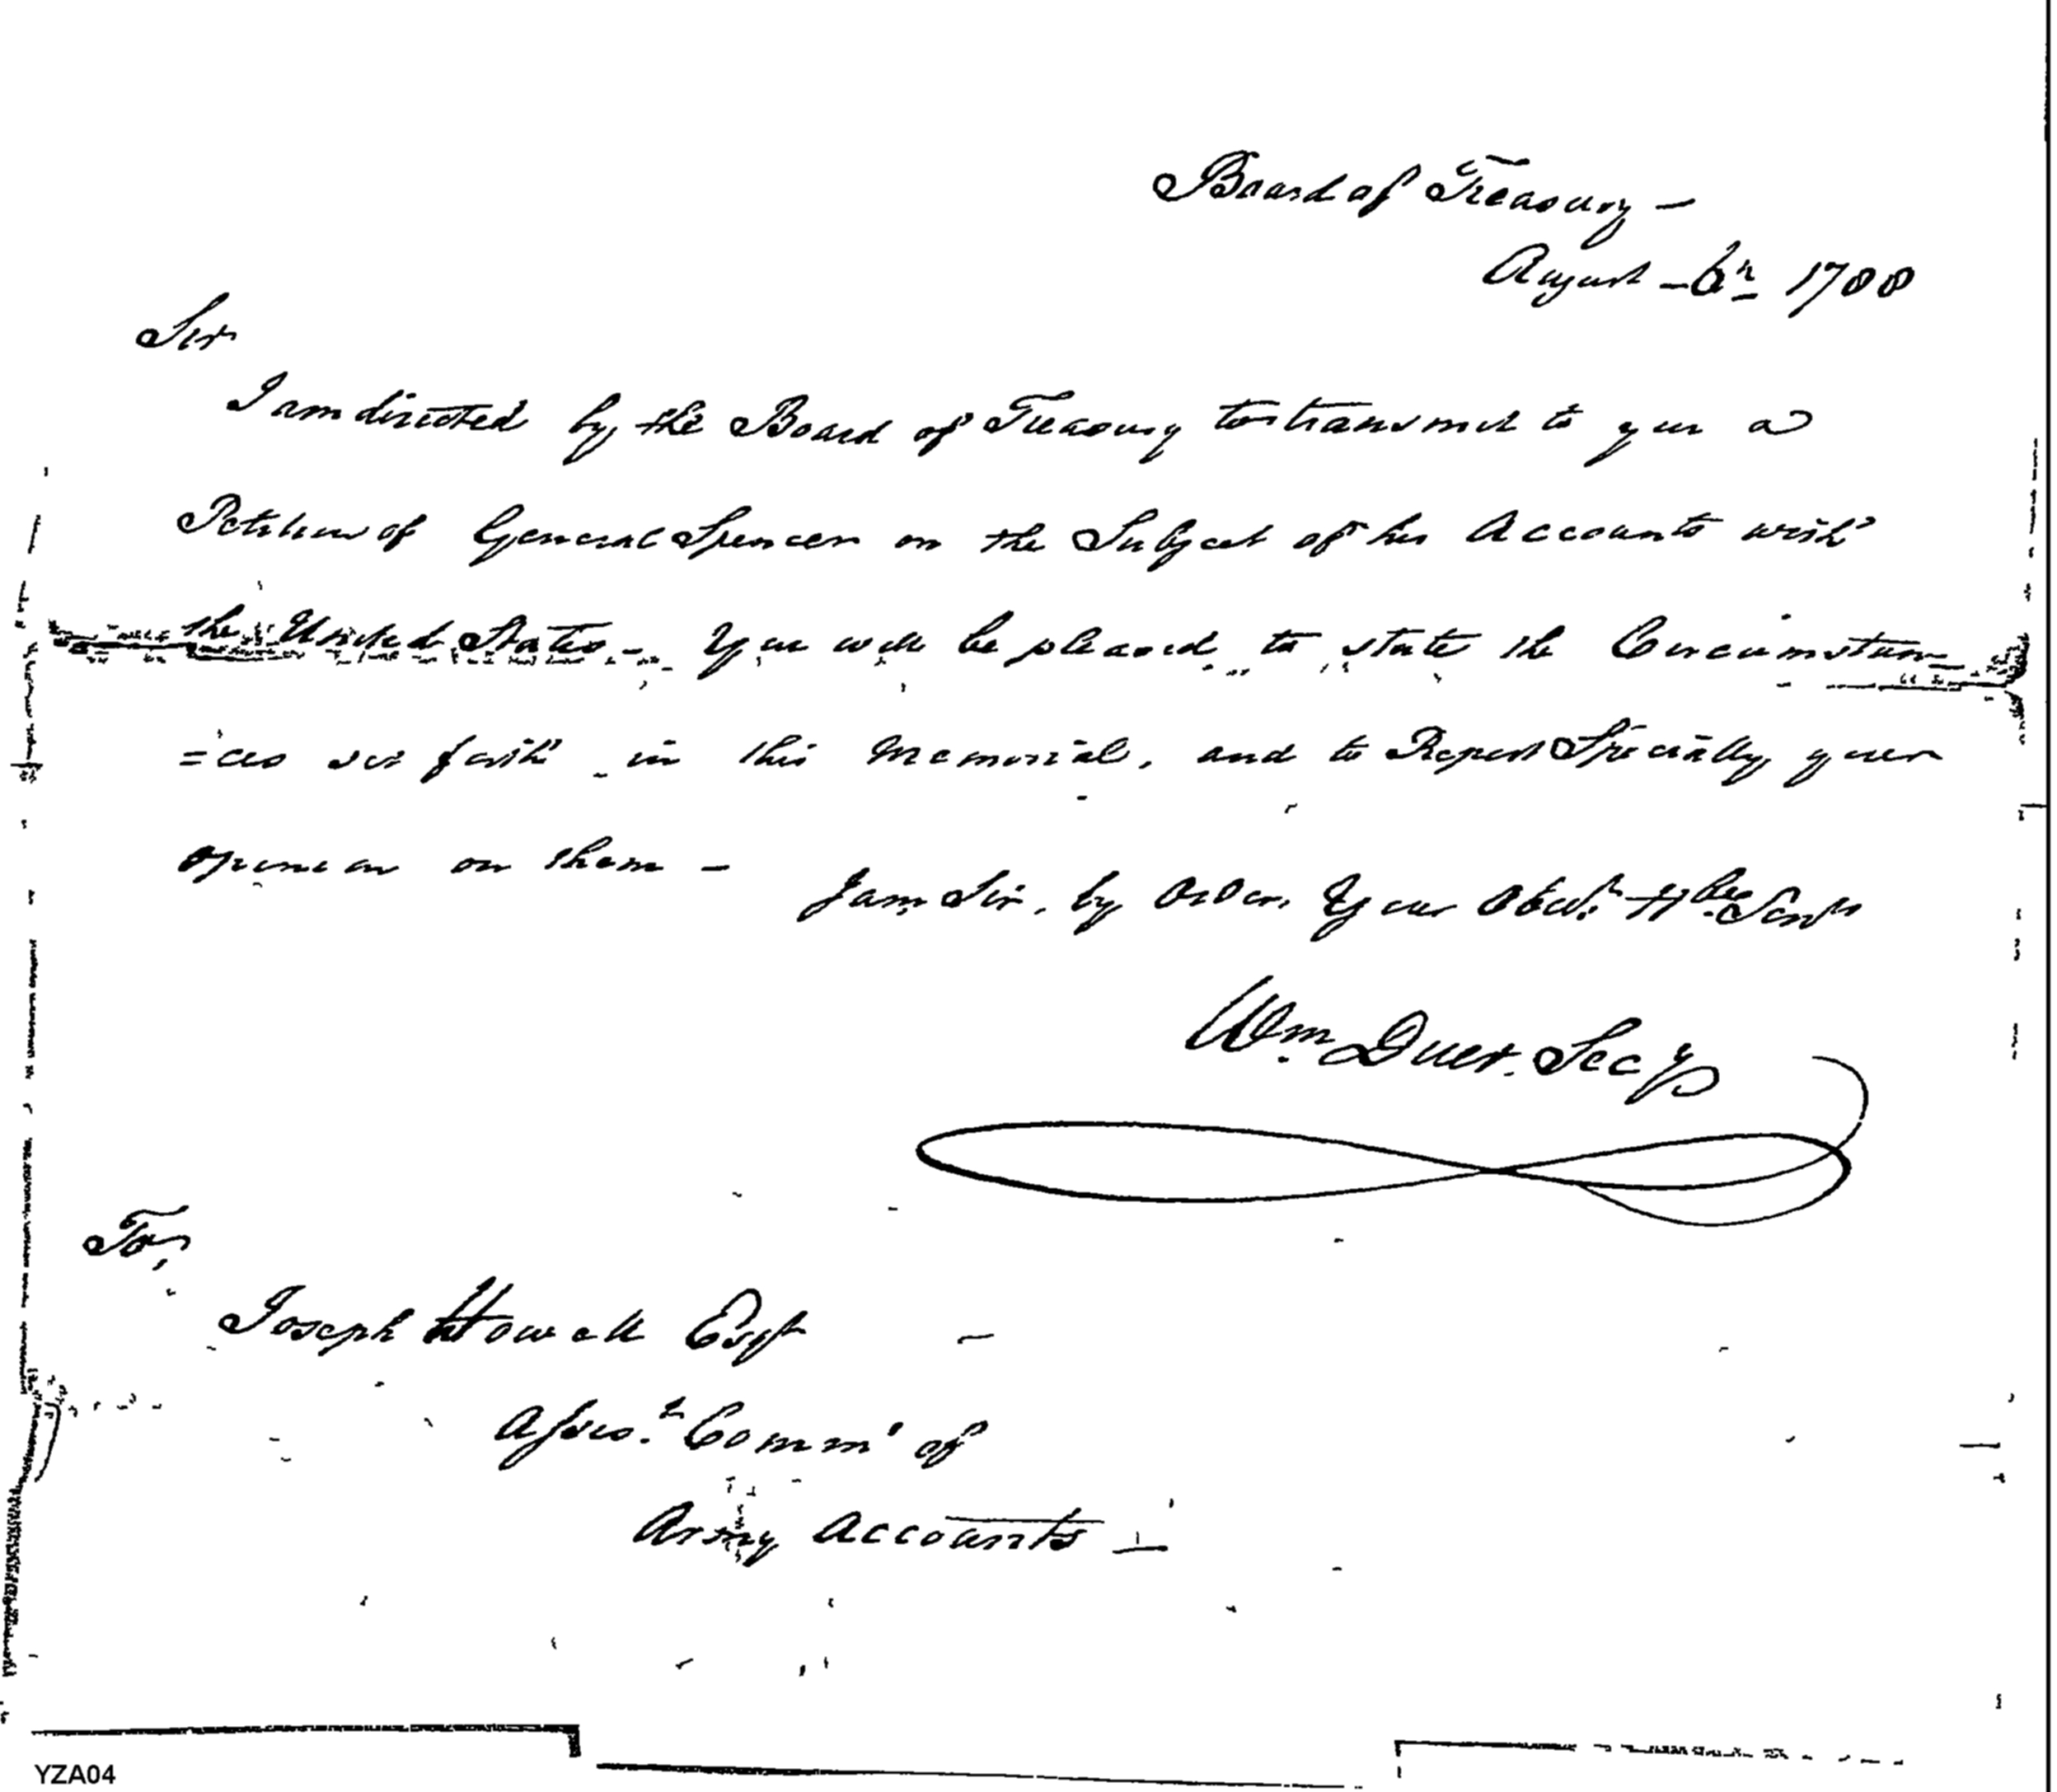 Board of Treasury —
August — 6th 1788
Sir
I am directed by the Board of Treasury to transmit to you a
Petition of General Spencer on the Subject of his Accounts with
the United States — You will be pleased to state the Circumstan
=ces set forth in this Memorial, and to Report Specially your
opinion on them —
I am, Sir, by Order, Your Obed.t H'ble Serv't
Wm Duer. Secy
To,
Joseph Howell Esqr —
Comm'r of
Army Accounts —
YZA04